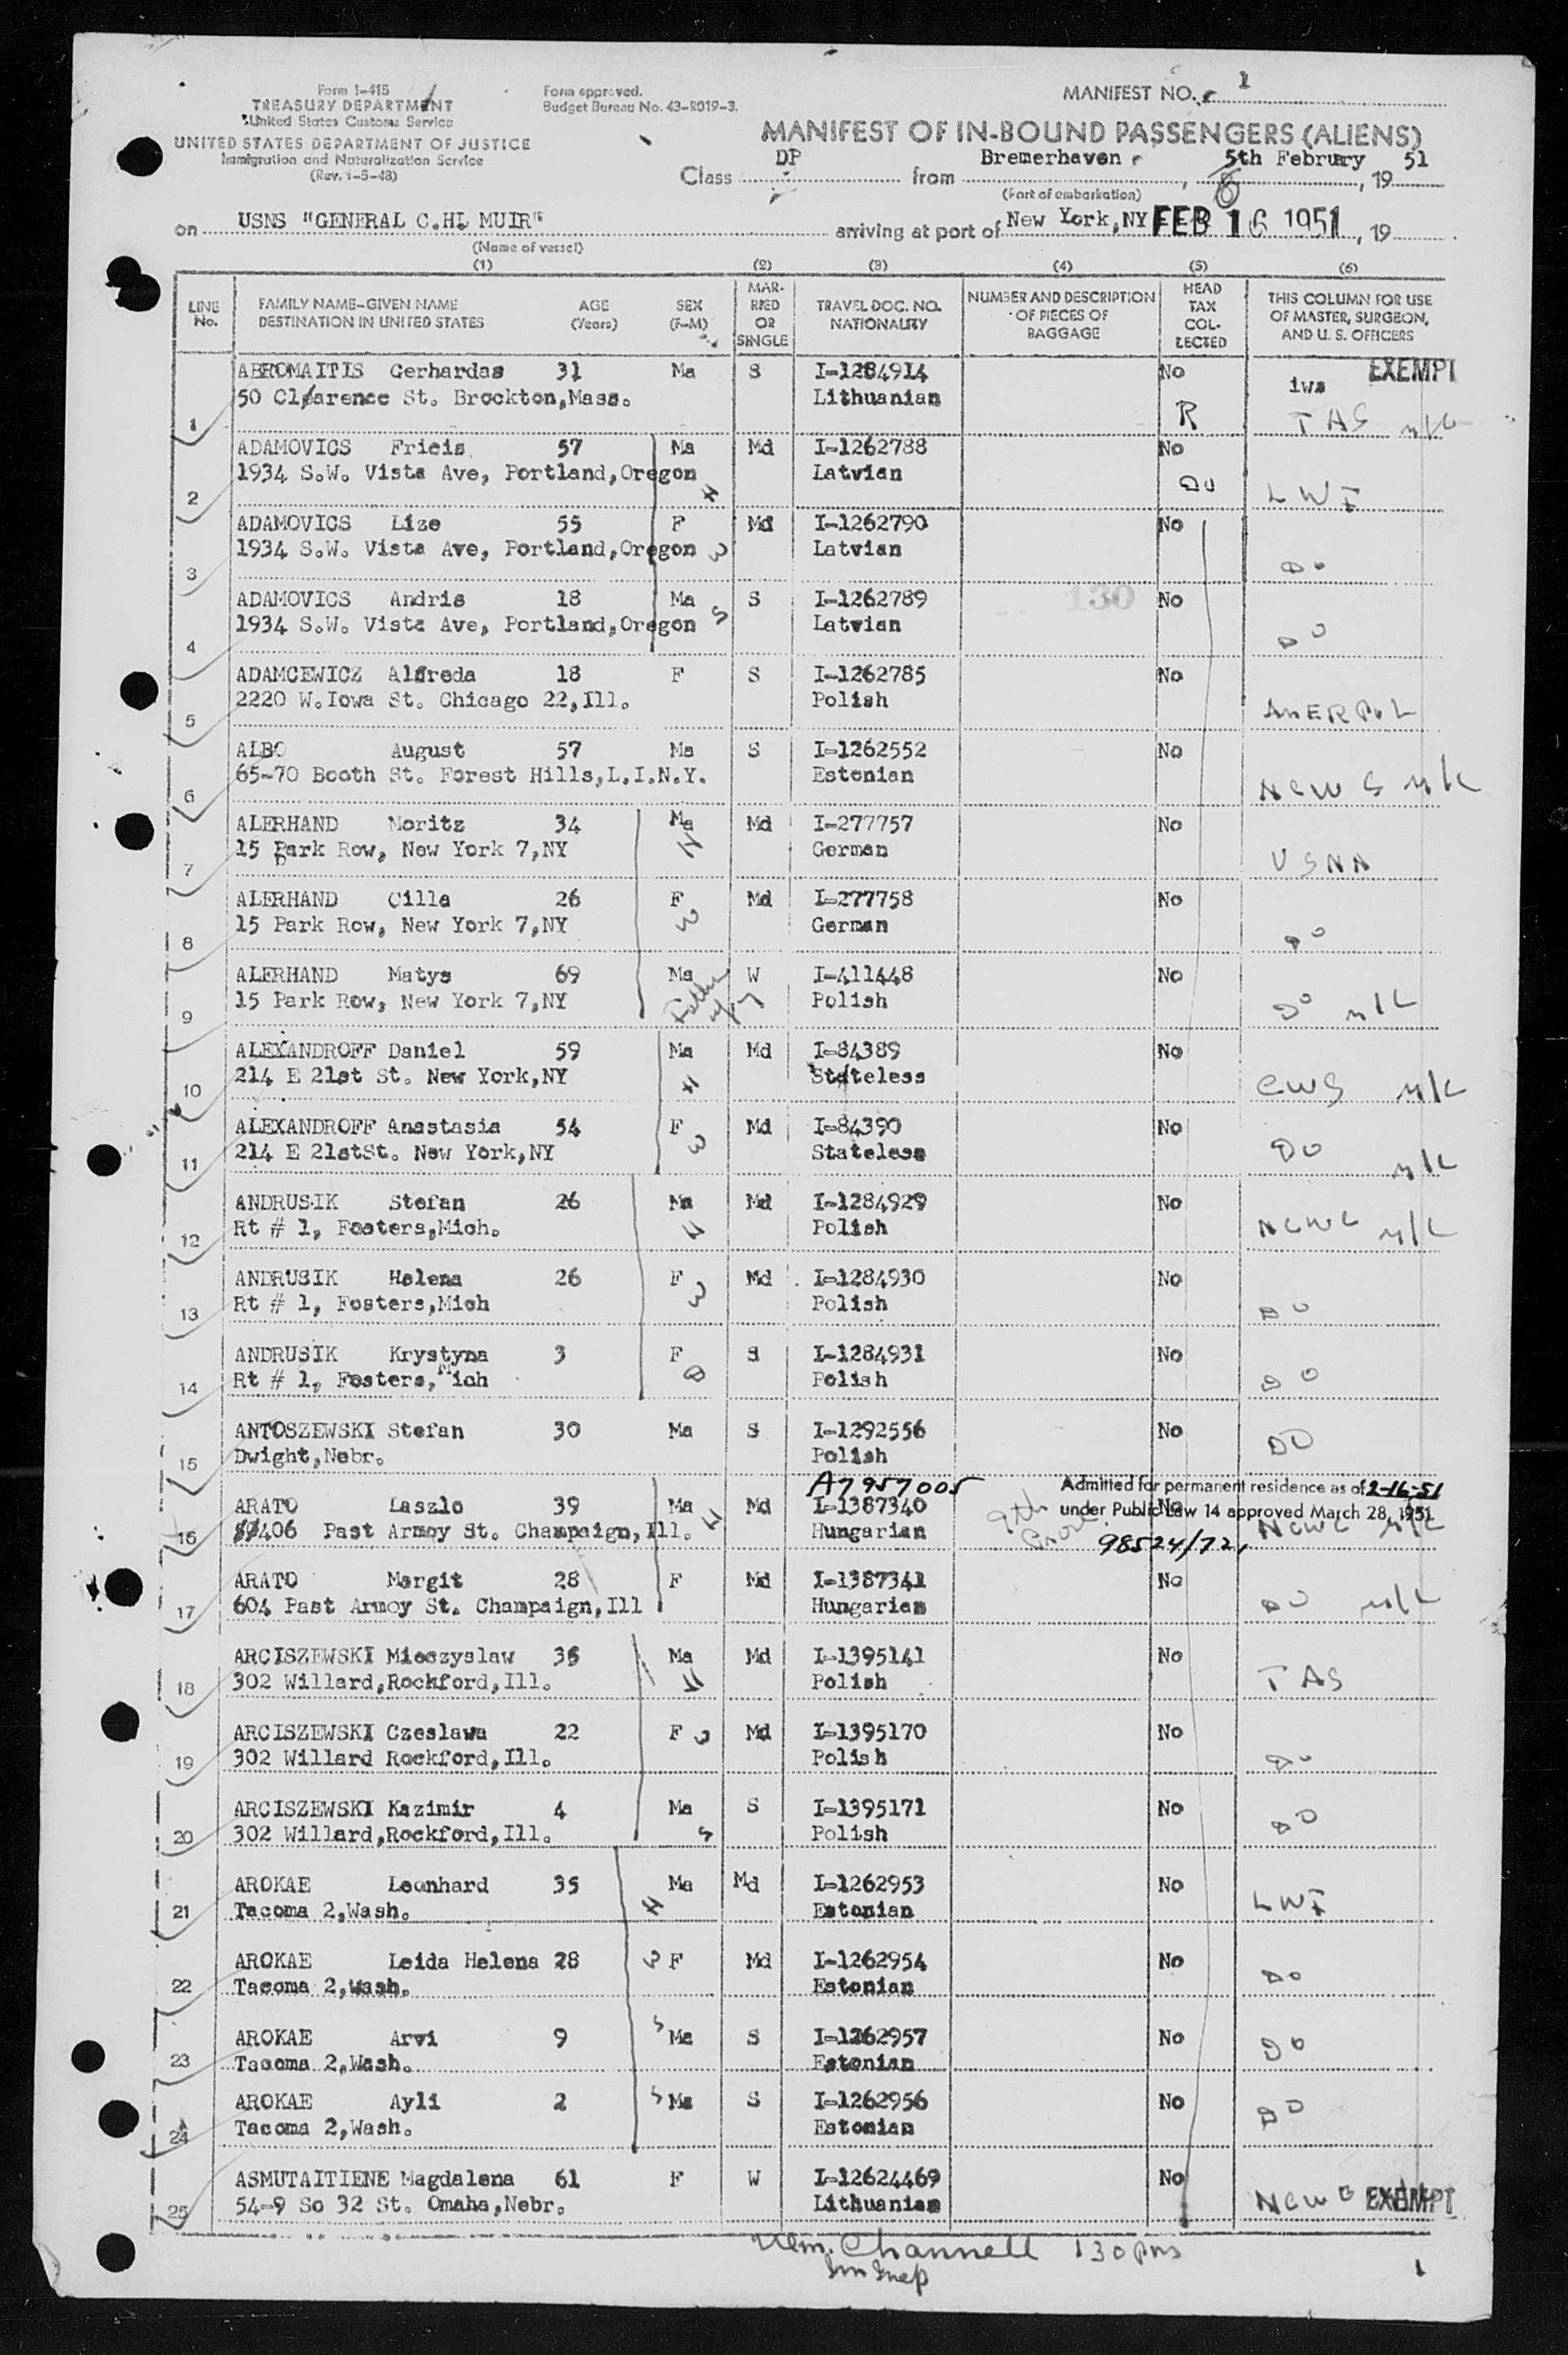 Form I-415
TREASURY DEPARTMENT
United States Customs Service
UNITED STATES DEPARTMENT OF JUSTICE
Immigration and Naturalization Service
(Rev. 1-5-48)
Form approved.
Budget Bureau No. 43-R019-3.
MANIFEST NO. 1
MANIFEST OF IN-BOUND PASSENGERS (ALIENS)
Class DP from Bremerhaven, 5th February, 19 51
(Port of embarkation) 8
on USNS "GENERAL C.H. MUIR" arriving at port of New York,NY FEB 16 1951, 19
(Name of vessel)
(1) (2) (3) (4) (5) (6)
LINE No.
FAMILY NAME-GIVEN NAME
DESTINATION IN UNITED STATES
AGE (Years)
SEX (F-M)
MARRIED OR SINGLE
TRAVEL DOC. NO. NATIONALITY
NUMBER AND DESCRIPTION OF PIECES OF BAGGAGE
HEAD TAX COLLECTED
THIS COLUMN FOR USE OF MASTER, SURGEON, AND U. S. OFFICERS
ABROMAITIS Gerhardas 31 Ma S I-1284914 No iws EXEMPT
1 50 Clarence St. Brockton,Mass. Lithuanian R TAS n/c
ADAMOVICS Fricis 57 Ma Md I-1262788 No
2 1934 S.W. Vista Ave, Portland,Oregon H Latvian Do LWF
ADAMOVICS Lize 55 F Md I-1262790 No
3 1934 S.W. Vista Ave, Portland,Oregon W Latvian Do
ADAMOVICS Andris 18 Ma S I-1262789 130 No
4 1934 S.W. Vista Ave, Portland,Oregon S Latvian Do
ADAMCEWICZ Alfreda 18 F S I-1262785 No
5 2220 W.Iowa St. Chicago 22,Ill. Polish AMERPOL
ALBO August 57 Ma S I-1262552 No
6 65-70 Booth St. Forest Hills,L.I.N.Y. Estonian NCWC n/c
ALERHAND Moritz 34 Ma Md I-277757 No
7 15 Park Row, New York 7,NY H German USNA
ALERHAND Cilla 26 F Md I-277758 No
8 15 Park Row, New York 7,NY W German Do
ALERHAND Matys 69 Ma W I-411448 No
9 15 Park Row, New York 7,NY Father of 7 Polish Do n/c
ALEXANDROFF Daniel 59 Ma Md I-84389 No
10 214 E 21st St. New York,NY H Stateless CWS n/c
ALEXANDROFF Anastasia 54 F Md I-84390 No
11 214 E 21stSt. New York,NY W Stateless Do n/c
ANDRUSIK Stefan 26 Ma Md I-1284929 No
12 Rt # 1, Fosters,Mich. H Polish NCWC n/c
ANDRUSIK Helena 26 F Md I-1284930 No
13 Rt # 1, Fosters,Mich W Polish Do
ANDRUSIK Krystyna 3 F S I-1284931 No
14 Rt # 1, Fosters,Mich D Polish Do
ANTOSZEWSKI Stefan 30 Ma S I-1292556 No
15 Dwight,Nebr. Polish Do
A7957005 Admitted for permanent residence as of 2-16-51
ARATO Laszlo 39 Ma Md I-1387340 No under Public Law 14 approved March 28, 1951
16 406 Past Armoy St. Champaign,Ill. H Hungarian 98524/72, NCWC n/c
ARATO Margit 28 F Md I-1387341 No
17 604 Past Armoy St. Champaign,Ill Hungarian Do n/c
ARCISZEWSKI Mieczyslaw 36 Ma Md I-1395141 No
18 302 Willard,Rockford,Ill. H Polish TAS
ARCISZEWSKI Czeslawa 22 F W Md I-1395170 No
19 302 Willard Rockford,Ill. Polish Do
ARCISZEWSKI Kazimir 4 Ma S I-1395171 No
20 302 Willard,Rockford,Ill. S Polish Do
AROKAE Leonhard 35 Ma Md I-1262953 No
21 Tacoma 2,Wash. H Estonian LWF
AROKAE Leida Helena 28 W F Md I-1262954 No
22 Tacoma 2,Wash. Estonian Do
AROKAE Arvi 9 S Ma S I-1262957 No
23 Tacoma 2,Wash. Estonian Do
AROKAE Ayli 2 S Ma S I-1262956 No
24 Tacoma 2,Wash. Estonian Do
ASMUTAITIENE Magdalena 61 F W I-12624469 No
25 54-9 So 32 St. Omaha,Nebr. Lithuanian NCWC EXEMPT
Wm. Channell 130 pns
Imm Insp
1